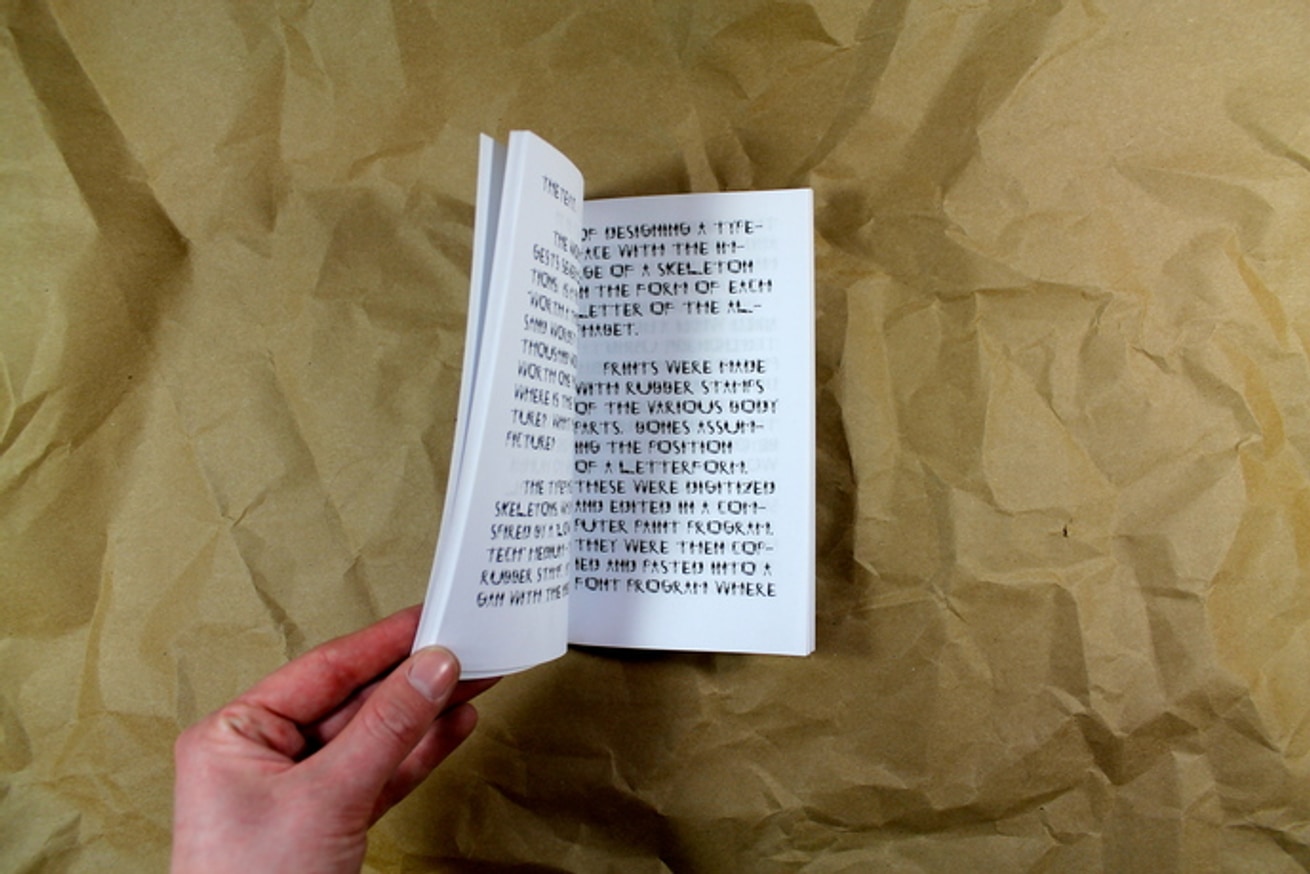 THE TEXT
THE
GESTS
TIONS. IS
WORTH A
SAND WORDS?
THOUSAND
WORTH ONE
WHERE IS THE
TURE?
PICTURE?
THE TYPE
SKELETONS
SPIRED BY A LOW
TECH MEDIUM-
RUBBER
GAN WITH THE
OF DESIGNING A TYPE-
ACE WITH THE IM-
GE OF A SKELETON
N THE FORM OF EACH
LETTER OF THE AL-
PHABET.
PRINTS WERE MADE
WITH RUBBER STAMPS
OF THE VARIOUS BODY
PARTS. BONES ASSUM-
ING THE POSITION
OF A LETTERFORM.
THESE WERE DIGITIZED
AND EDITED IN A COM-
PUTER PAINT PROGRAM.
THEY WERE THEN COP-
IED AND PASTED INTO A
FONT PROGRAM WHERE